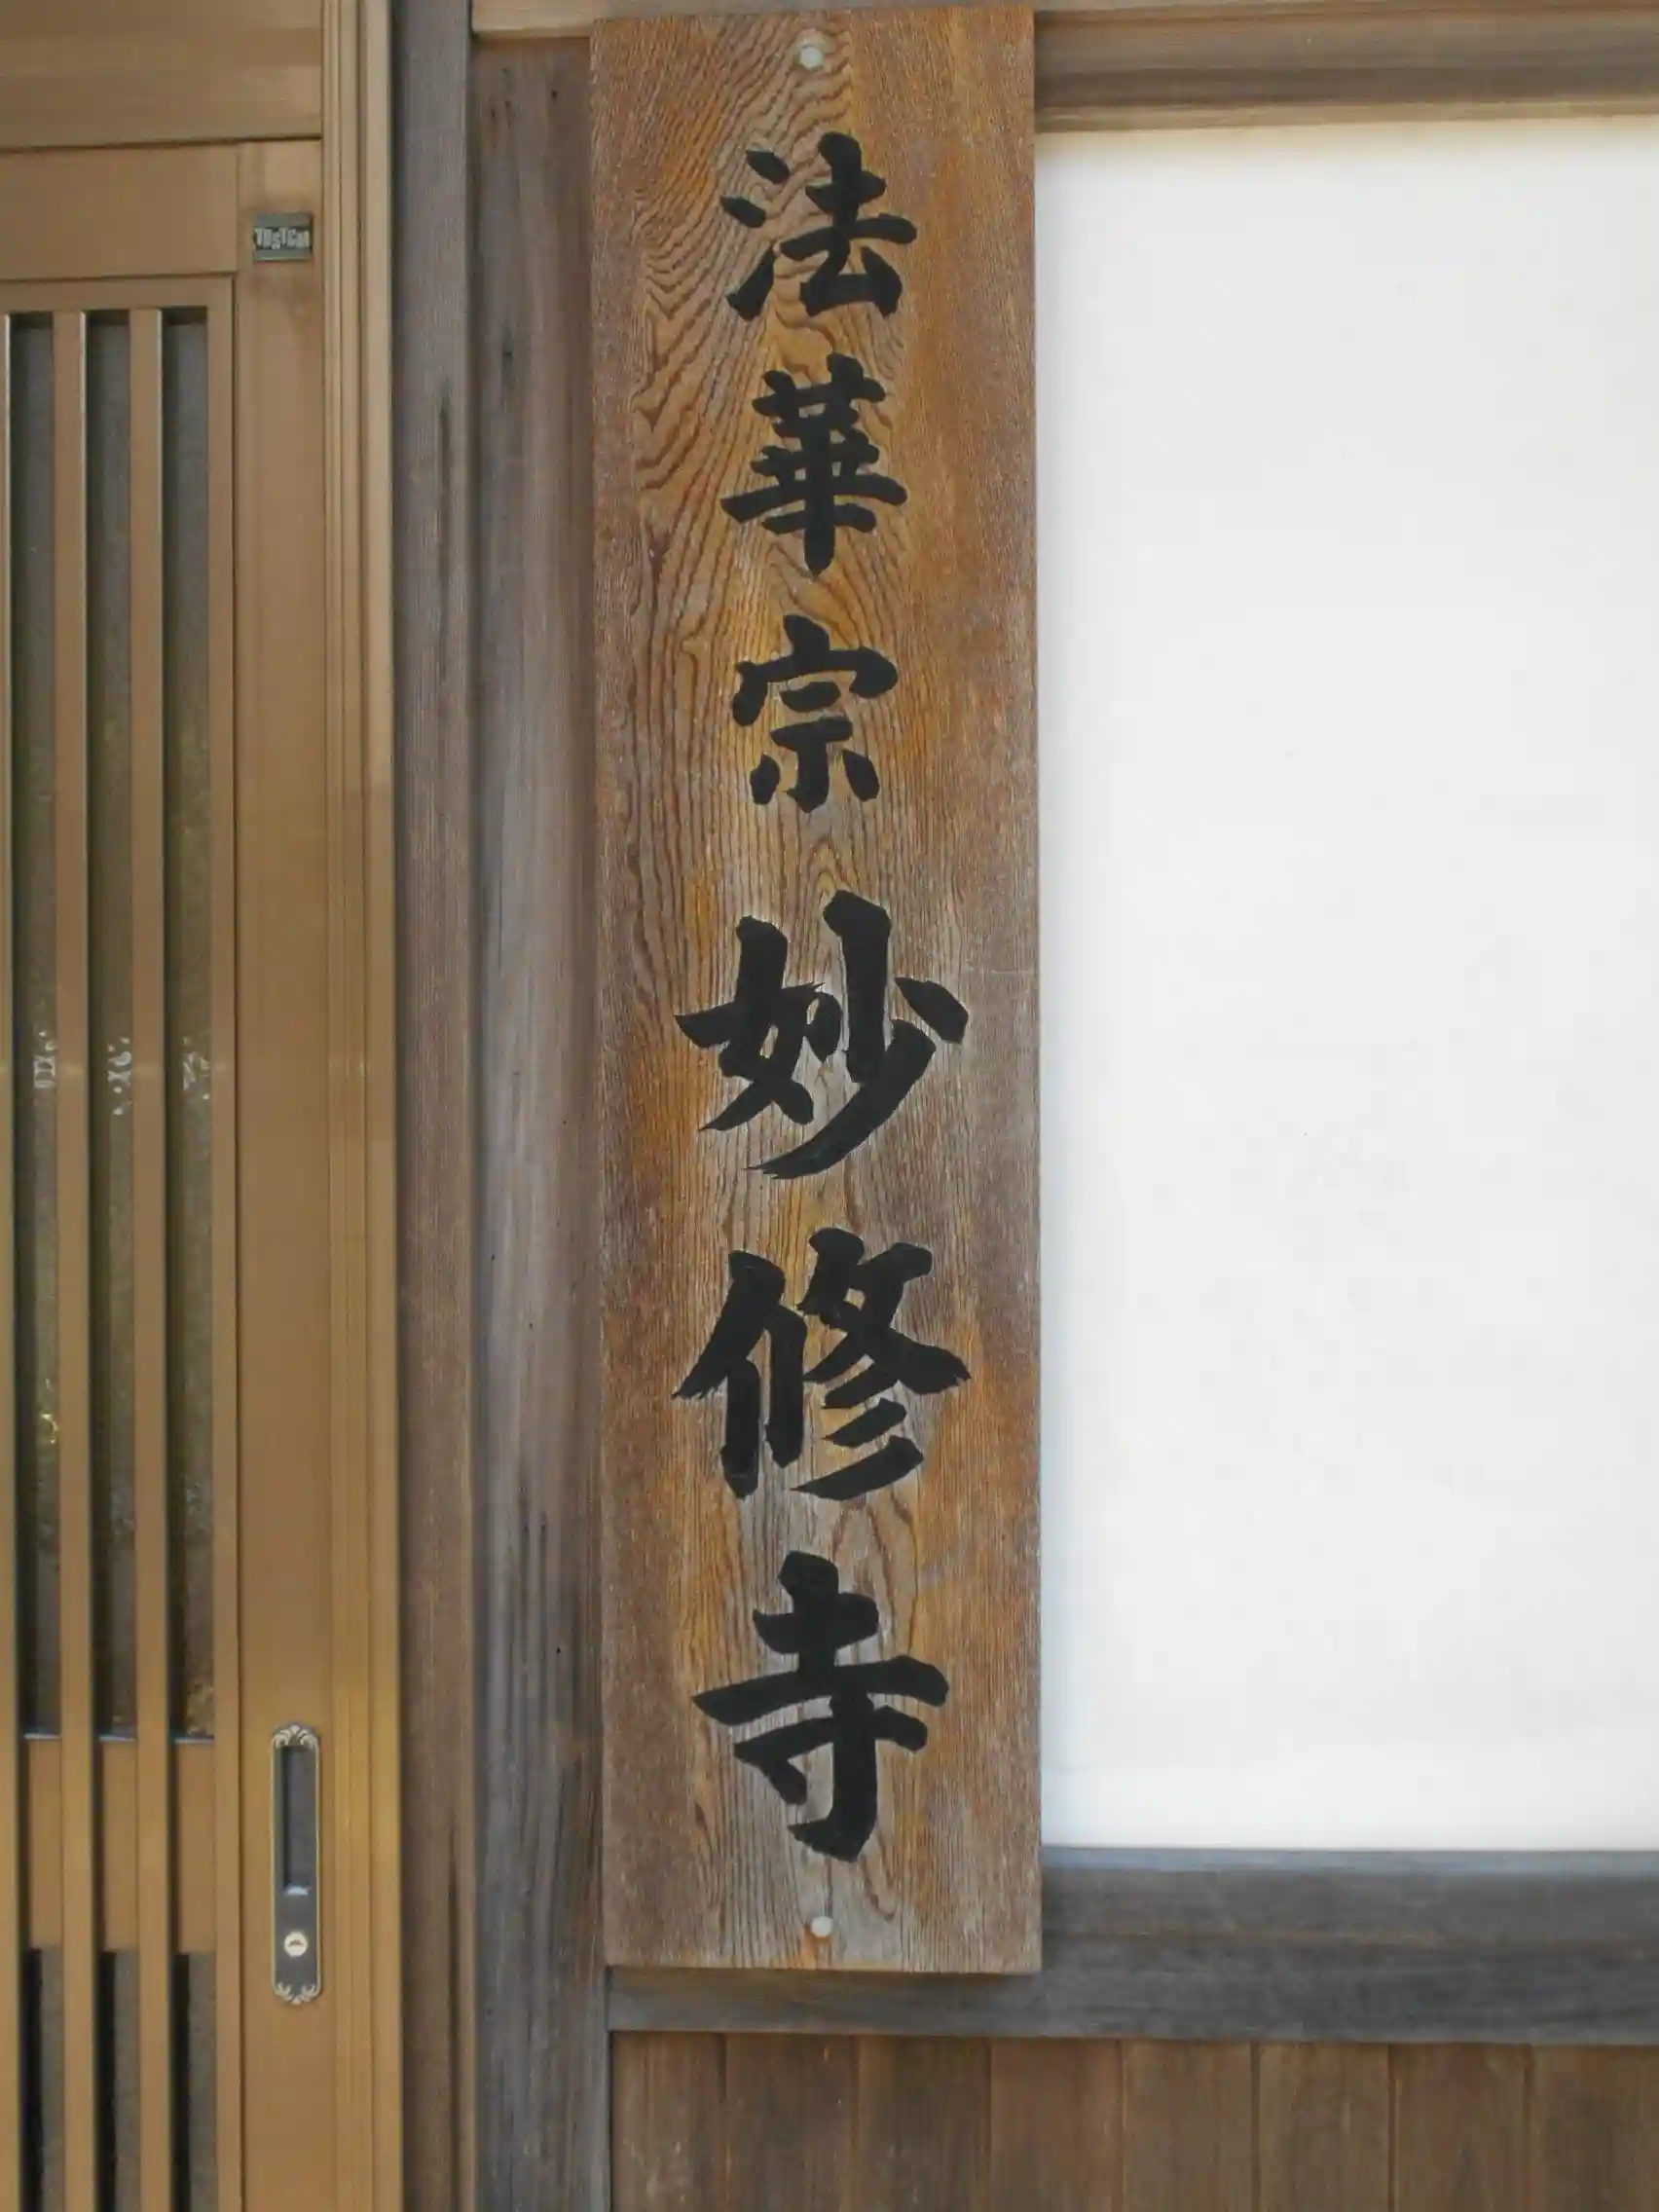 TOSTEM
法華宗 妙修寺